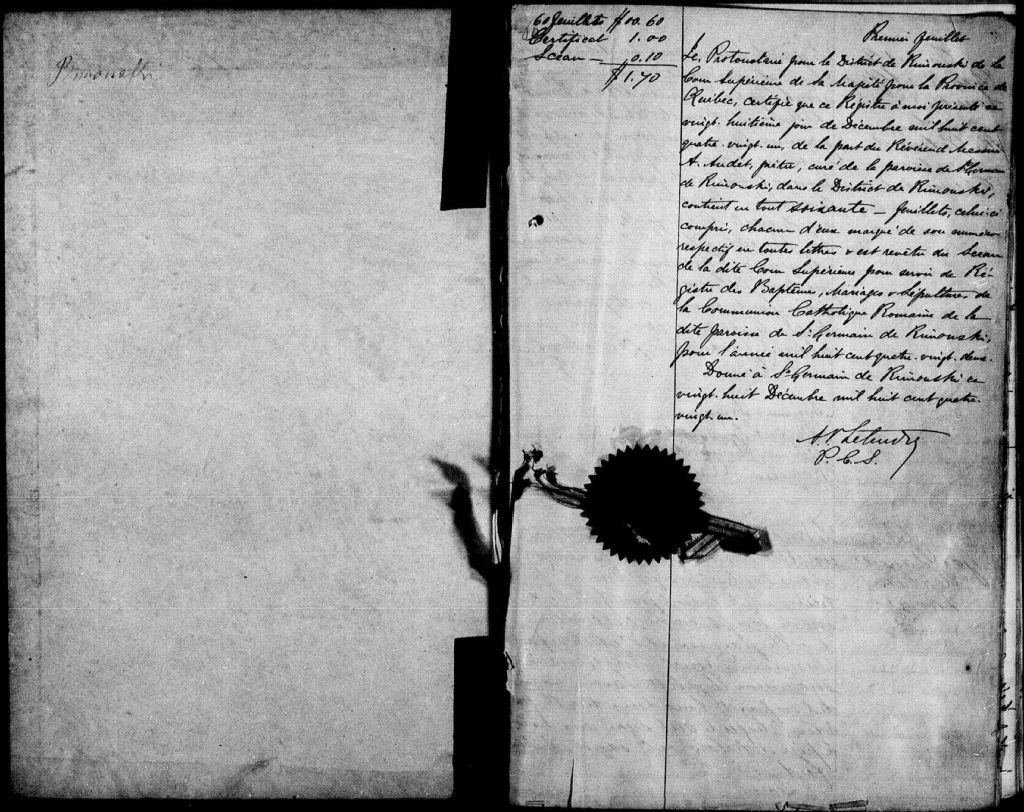 Rimouski
60 feuillets $00.60
Certificat 1.00
Sceau — 0.10
$1.70
Premier feuillet
Le Protonotaire pour le District de Rimouski de la
Cour Supérieure de Sa Majesté pour la Province de
Québec, certifie que ce Régistre à moi présenté ce
vingt-huitième jour de Décembre mil huit cent
quatre-vingt-un, de la part du Révérend Messire
A. Audet, prêtre, curé de la paroisse de St Germain
de Rimouski, dans le District de Rimouski,
contient en tout soixante — feuillets, celui-ci
compris, chacun d'eux marqué de son numéro
respectif en toutes lettres & est revêtu du Sceau
de la dite Cour Supérieure pour servir de Ré-
gistre des Baptême, Mariages & Sépultures de
la Communion Catholique Romaine de la
dite paroisse de St Germain de Rimouski,
pour l'année mil huit cent quatre-vingt-deux.
Donné à St Germain de Rimouski ce
vingt-huit Décembre mil huit cent quatre-
vingt-un.
P. C. S.